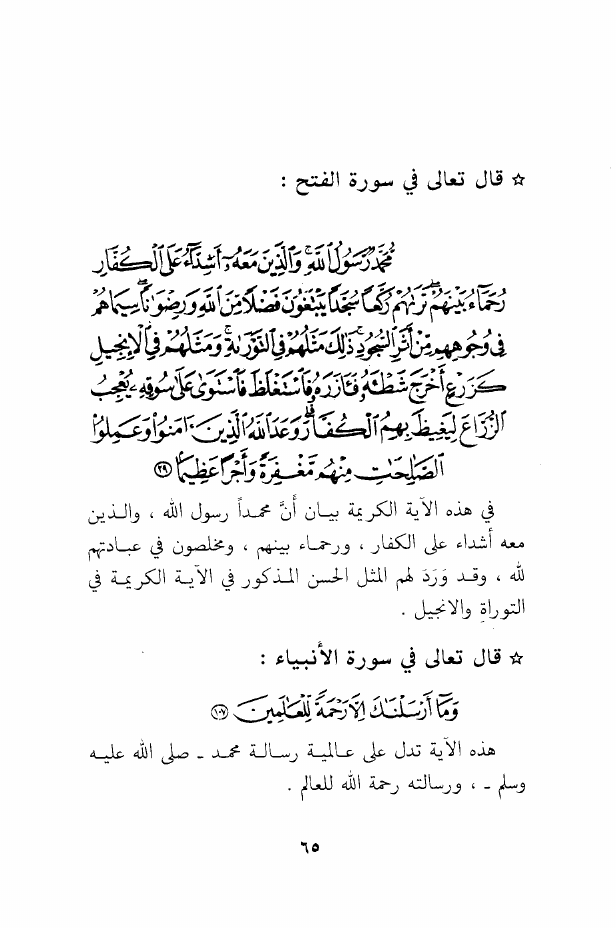 ☆ قال تعالى في سورة الفتح :
مُّحَمَّدٌ رَّسُولُ ٱللَّهِ ۚ وَٱلَّذِينَ مَعَهُۥٓ أَشِدَّآءُ عَلَى ٱلْكُفَّارِ
رُحَمَآءُ بَيْنَهُمْ ۖ تَرَىٰهُمْ رُكَّعًا سُجَّدًا يَبْتَغُونَ فَضْلًا مِّنَ ٱللَّهِ وَرِضْوَٰنًا ۖ سِيمَاهُمْ
فِى وُجُوهِهِم مِّنْ أَثَرِ ٱلسُّجُودِ ۚ ذَٰلِكَ مَثَلُهُمْ فِى ٱلتَّوْرَىٰةِ ۚ وَمَثَلُهُمْ فِى ٱلْإِنجِيلِ
كَزَرْعٍ أَخْرَجَ شَطْـَٔهُۥ فَـَٔازَرَهُۥ فَٱسْتَغْلَظَ فَٱسْتَوَىٰ عَلَىٰ سُوقِهِۦ يُعْجِبُ
ٱلزُّرَّاعَ لِيَغِيظَ بِهِمُ ٱلْكُفَّارَ ۗ وَعَدَ ٱللَّهُ ٱلَّذِينَ ءَامَنُوا۟ وَعَمِلُوا۟
ٱلصَّٰلِحَٰتِ مِنْهُم مَّغْفِرَةً وَأَجْرًا عَظِيمًۢا ٢٩
في هذه الآية الكريمة بيـان أنَّ محمـداً رسول الله ، والـذين
معه أشداء على الكفار ، ورحمـاء بينهم ، ومخلصون في عبـادتهم
لله ، وقـد وَرَدَ لهم المثل الحسن المـذكور في الآيـة الكريمـة في
التوراة والانجيل .
☆ قال تعالى في سورة الأنبياء :
وَمَآ أَرْسَلْنَٰكَ إِلَّا رَحْمَةً لِّلْعَٰلَمِينَ ١٠٧
هذه الآية تدل على عـالميـة رسـالـة محمـد ـ صلى الله عليـه
وسلم ـ ، ورسالته رحمة الله للعالم .
٦٥